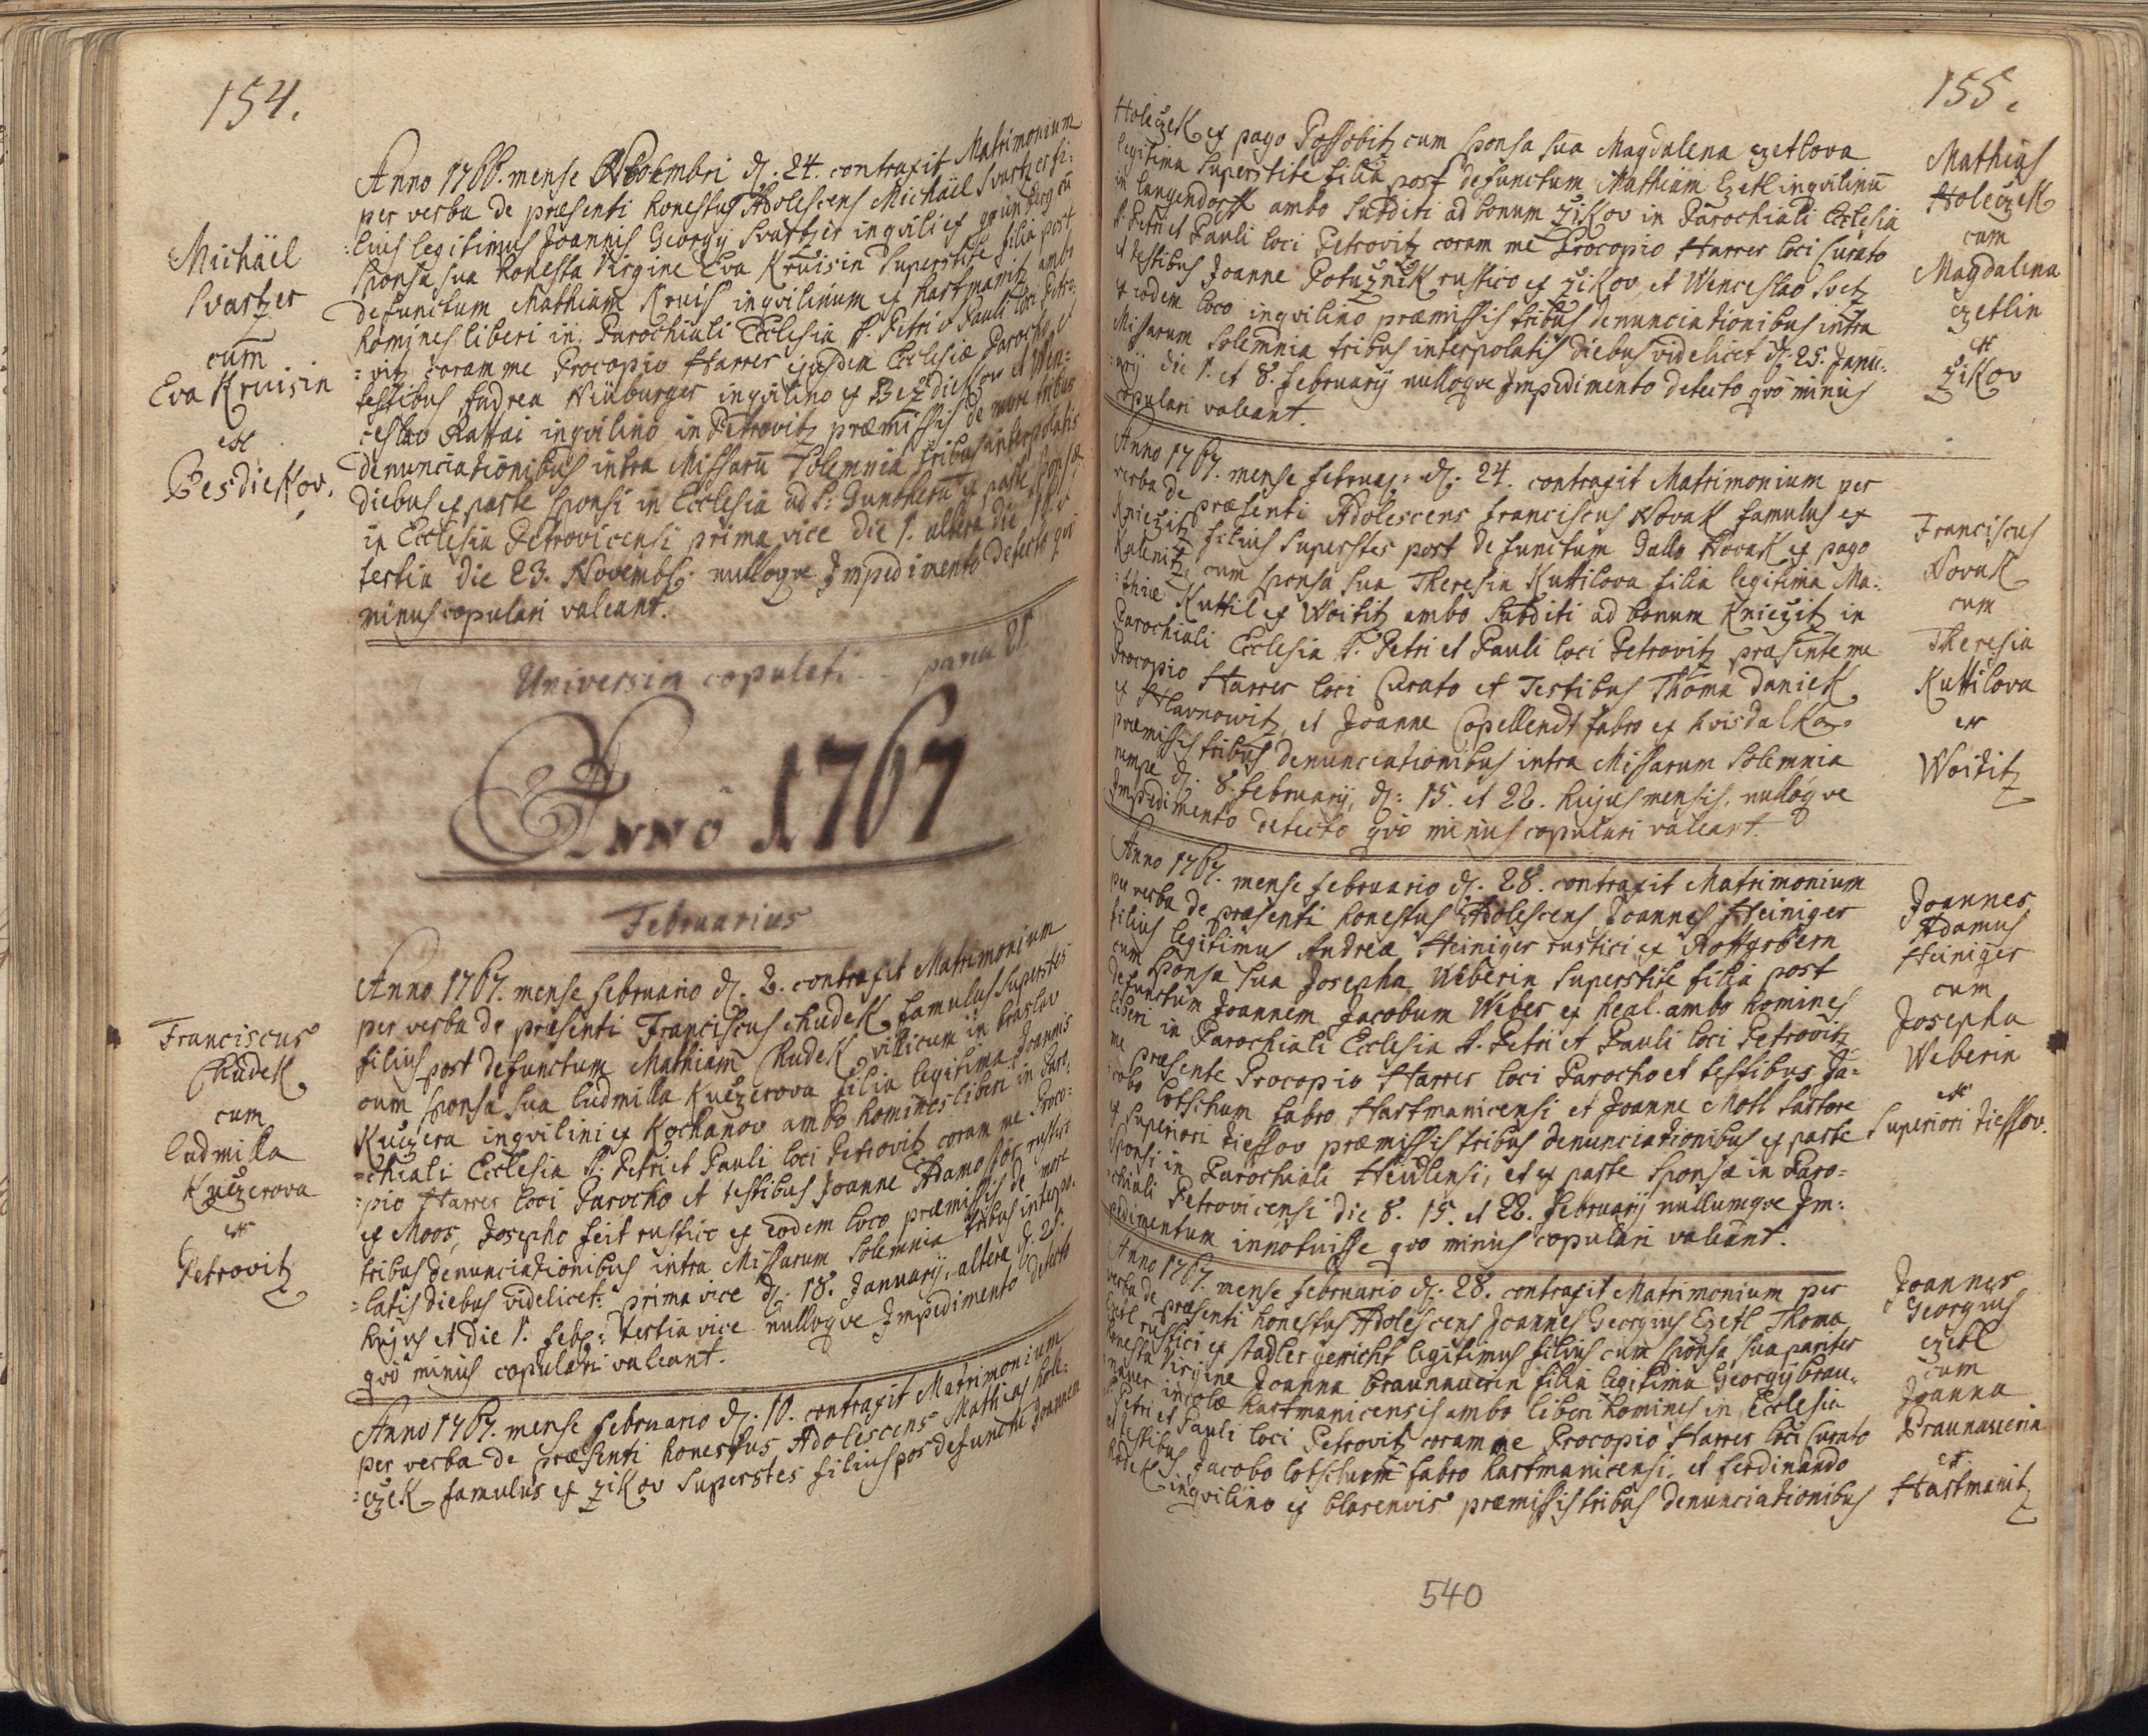 154.
Anno 1766. mense Novembri d. 24. contraxit Matrimonium
per verba de præsenti honestus Adolescens Michäel Svartzer fi:
:lius legitimus Joannis Georgÿ Svartzer inqvili ex grünberg cū
sponsa sua honesta Virgine Eva Kruisin superstite filia post
defunctum Mathiam Kruis inqvilinum ex hartmanitz ambo
homines liberi in Parochiali Ecclesia S. Petri et Pauli loci Petro:
:vitz coram me Procopio Harrer ejusdem Ecclesiæ Parocho, et
testibus Andrea Niüburger inqvilino ex Bezdiekow et Wen:
ceslao Rattai inqvilino in Petrovitz præmissis de more tribus
denunciationibus intra Missarū Solemnia tribus interpolatis
diebus ex parte sponsi in Ecclesia ad S: Guntherū ex parte sponsæ
in Ecclesia Petrovicensi prima vice die 1. altera die 16. et
tertia die 23. Novembr: nulloqve Impedimento detecto qvo
minus copulari valeant.
Michäel
Svartzer
cum
Eva Kruisin
ex
Besdiekov.
Universim copulati .. paria 21.
Anno 1767
Februarius
Anno 1767. mense februario d. 2. contraxit Matrimonium
per verba de præsenti Franciscus Chudek famulus superstes
filius post defunctum Mathiam Chudek villicum in braslav
cum sponsa sua ludmilla Kuczerova filia legitima Joannis
Kuczera inqvilini ex Kochanov ambo homines liberi in Par:
:chiali Ecclesia S. Petri et Pauli loci Petrovitz coram me Proco:
:pio Harrer loci Parocho et testibus Joanne Adamo rustico
ex Moos, Josepho feit rustico ex eodem loco præmissis de more
tribus denunciationibus intra Missarum Solemnia tribus interpo:
:latis diebus videlicet: prima vice d. 18. Januarÿ, altera d. 25.
hujus et die 1. febr: tertia vice nulloqve Impedimento detecto
qvo minus copulari valeant.
Franciscus
Chudek
cum
ludmilla
Kuczerova
ex
Petrovitz
Anno 1767. mense februario d. 10. contraxit Matrimonium
per verba de præsenti honestus Adolescens Mathias hole:
:czek famulus ex zikov superstes filius pos defunctū Joannem
155.
Holeczek ex pago Possobitz cum sponsa sua Magdalena czetlova
legitima superstite filia post defunctum Mathiam Czetl inqvilinū
in langendorff ambo subditi ad bonum zikov in Parochiali Ecclesia
S. Petri et Pauli loci Petrovitz coram me Procopio Harrer loci Curato
et testibus Joanne Potužnik rustico ex zikov, et Wenceslao Svetz
ex eodem loco inqvilino præmissis tribus denunciationibus intra
Missarum Solemnia tribus interpolatis diebus videlicet d. 25. Janu:
:arÿ die 1. et 8. februarÿ nulloqve Impedimento detecto qvo minus
copulari valeant.
Mathias
Holeczek
cum
Magdalena
czetlin
ex
zikov
Anno 1767. mense februar: d. 24. contraxit Matrimonium per
verba de præsenti Adolescens franciscus Novak famulus ex
Kniezitz filius superstes post defunctum Gallū Novak ex pago
Kalenitz cum sponsa sua Theresia Kuttilova filia legitima Ma:
:thiæ Kuttil ex Woititz ambo subditi ad bonum Kniezitz in
Parochiali Ecclesia S. Petri et Pauli loci Petrovitz præsente me
Procopio Harrer loci Curato et Testibus Thoma Daniek
ex Hlavnowitz, et Joanne Copellendt fabro ex hvisdalka
præmissis tribus denunciationibus intra Missarum Solemnia
nempe d. 8. februarÿ, d: 15. et 22. hujus mensis, nulloqve
Impedimento detecto qvo minus copulari valeant.
Franciscus
Novak
cum
Theresia
Kuttilova
ex
Woititz
Anno 1767. mense februario d. 28. contraxit Matrimonium
per verba de præsenti honestus Adolescens Joannes Heiniger
filius legitimus Andreæ Heiniger rustici ex Rottgrbern
cum sponsa sua Josepha Weberin superstite filia post
defunctum Joannem Jacobum Weber ex heal. ambo homines
liberi in Parochiali Ecclesia S. Petri et Pauli loci Petrovitz
me præsente Procopio Harrer loci Parocho et testibus Ja:
:cobo lotschum fabro Hartmanicensi et Joanne Motl sartore
ex superiori tieffov præmissis tribus denunciationibus ex parte
sponsi in Parochiali Heidlensi, et ex parte sponsæ in Paro:
:chiali Petrovicensi die 8. 15. et 22. februarÿ nullumqve Im:
:pedimentum innotuisse qvo minus copulari valeant.
Joannes
Adamus
Heiniger
cum
Josepha
Weberin
ex
Superiori tieffov.
Anno 1767. mense februario d. 28. contraxit Matrimonium per
verba de præsenti honestus Adolescens Joannes Georgius Czetl Thoma
Czetl rustici ex stadler gericht legitimus filius cum sponsa sua pariter
honesta Virgine Joanna braunauerin filia legitima Georgÿ brau:
:nauer incolæ hartmanicensis ambo liberi homines in Ecclesia
S. Petri et Pauli loci Petrovitz coram me Procopio Harrer loci Curato
et testibus Jacobo lotschum fabro hartmanicensi, et ferdinando
hodek inqvilino ex blasenvis præmissis tribus denunciationibus
Joannes
Georgius
czetl
cum
Joanna
Praunauerin
ex
Hartmanitz
540